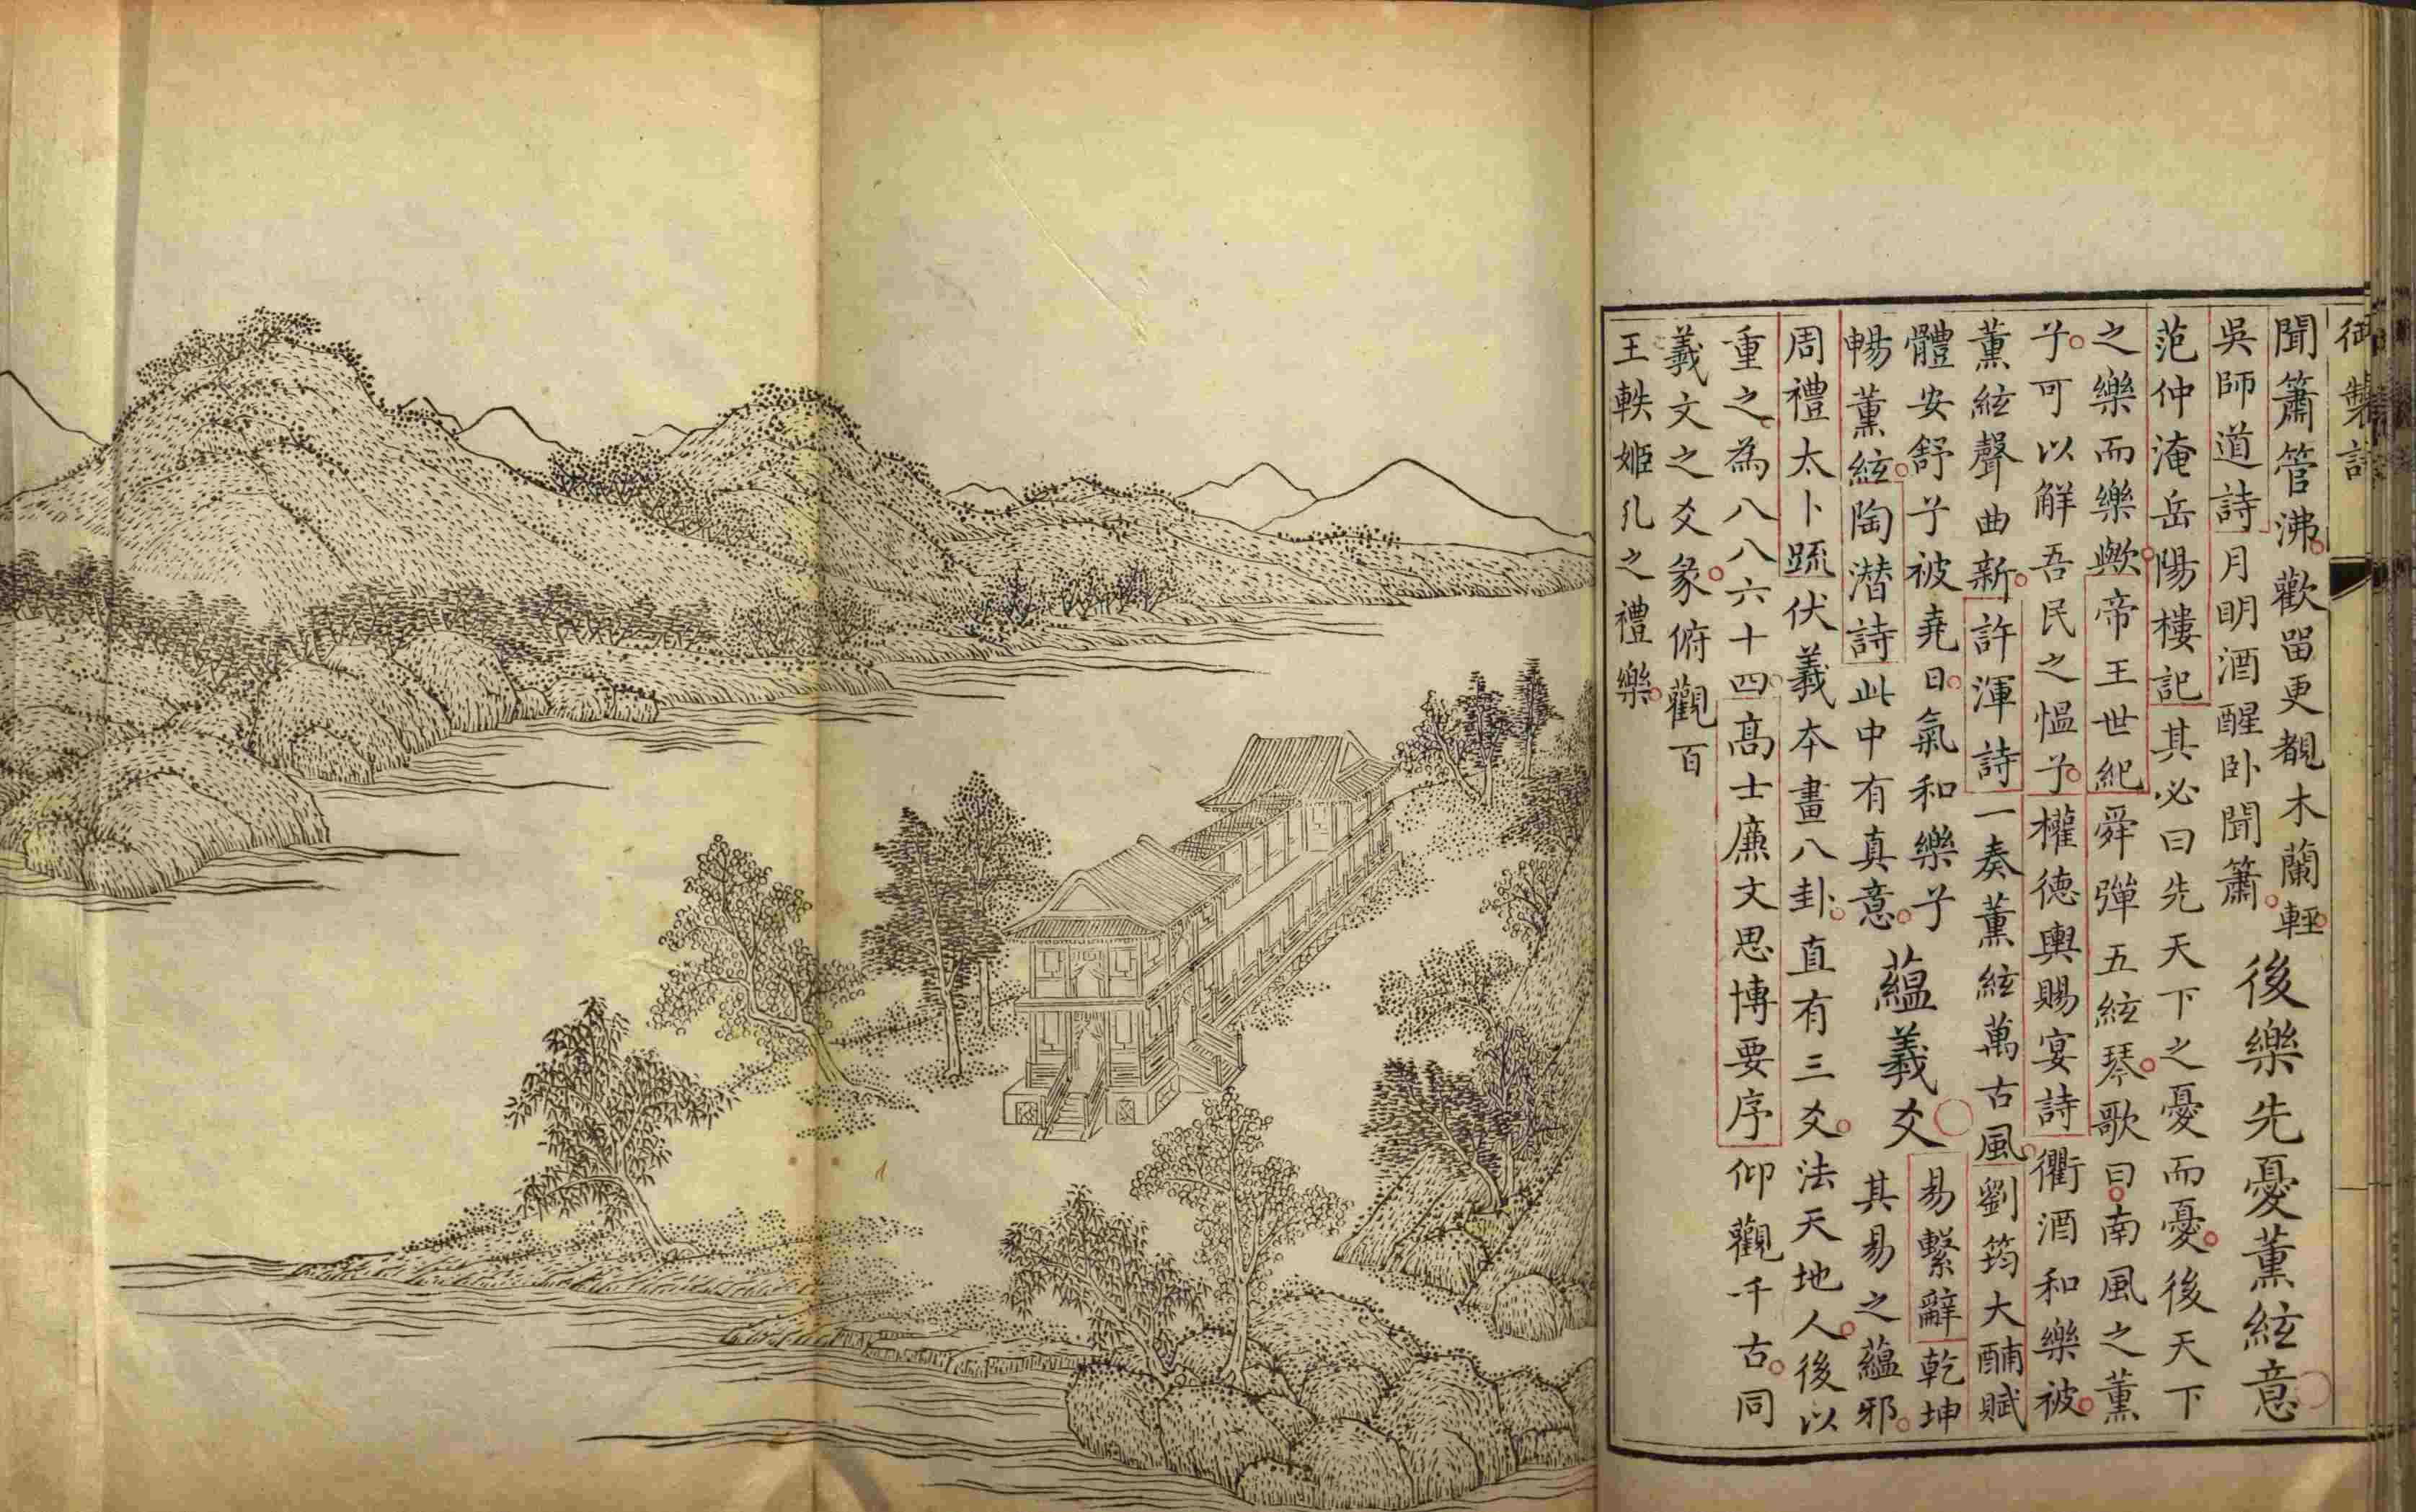 御製詩
聞簫管沸歡留更覩木蘭輕
吳師道詩月明酒醒卧聞簫
後樂先憂薰絃意
范仲淹岳陽樓記其必曰先天下之憂而憂後天下
之樂而樂歟帝王世紀舜彈五絃琴歌曰南風之薰
兮可以解吾民之慍兮權德輿賜宴詩衢酒和樂被
薰絃聲曲新許渾詩一奏薰絃萬古風劉筠大酺賦
體安舒兮被堯日氣和樂兮
暢薰絃陶潛詩此中有真意
蘊羲爻
易繫辭乾坤
其易之蘊邪
周禮太卜疏伏羲本畫八卦直有三爻法天地人後以
重之為八八六十四高士廉文思博要序仰觀千古同
羲文之爻彖俯觀百
王軼姬孔之禮樂